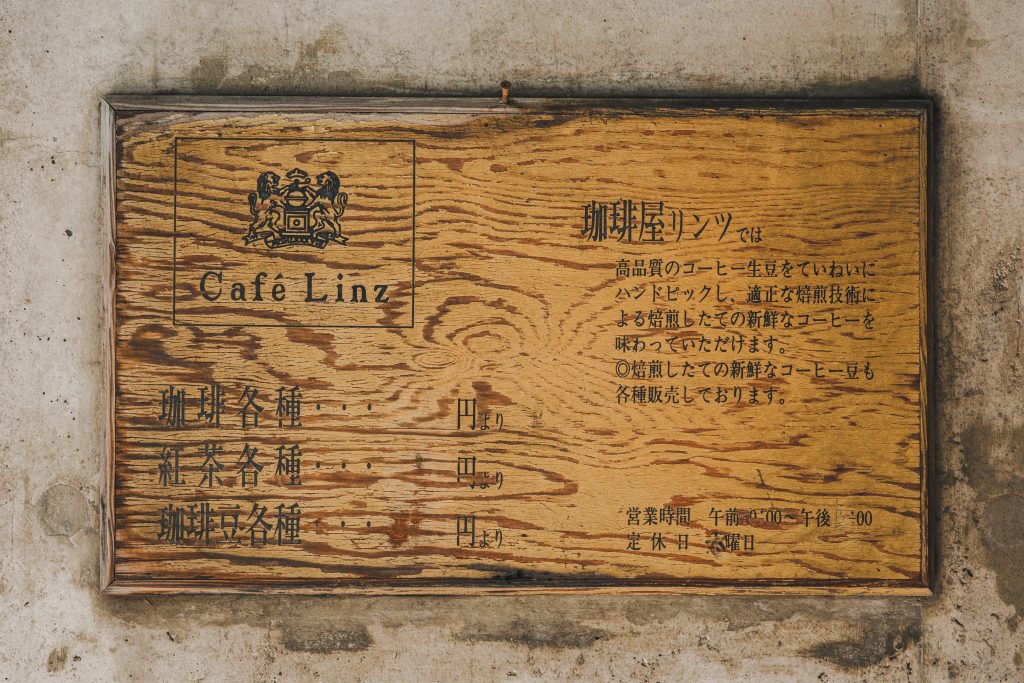 Café Linz
珈琲各種・・・ 円より
紅茶各種・・・ 円より
珈琲豆各種・・・ 円より
珈琲屋リンツでは
高品質のコーヒー生豆をていねいに
ハンドピックし、適正な焙煎技術に
よる焙煎したての新鮮なコーヒーを
味わっていただけます。
◎焙煎したての新鮮なコーヒー豆も
各種販売しております。
営業時間 午前 :00〜午後 :00
定休日 曜日